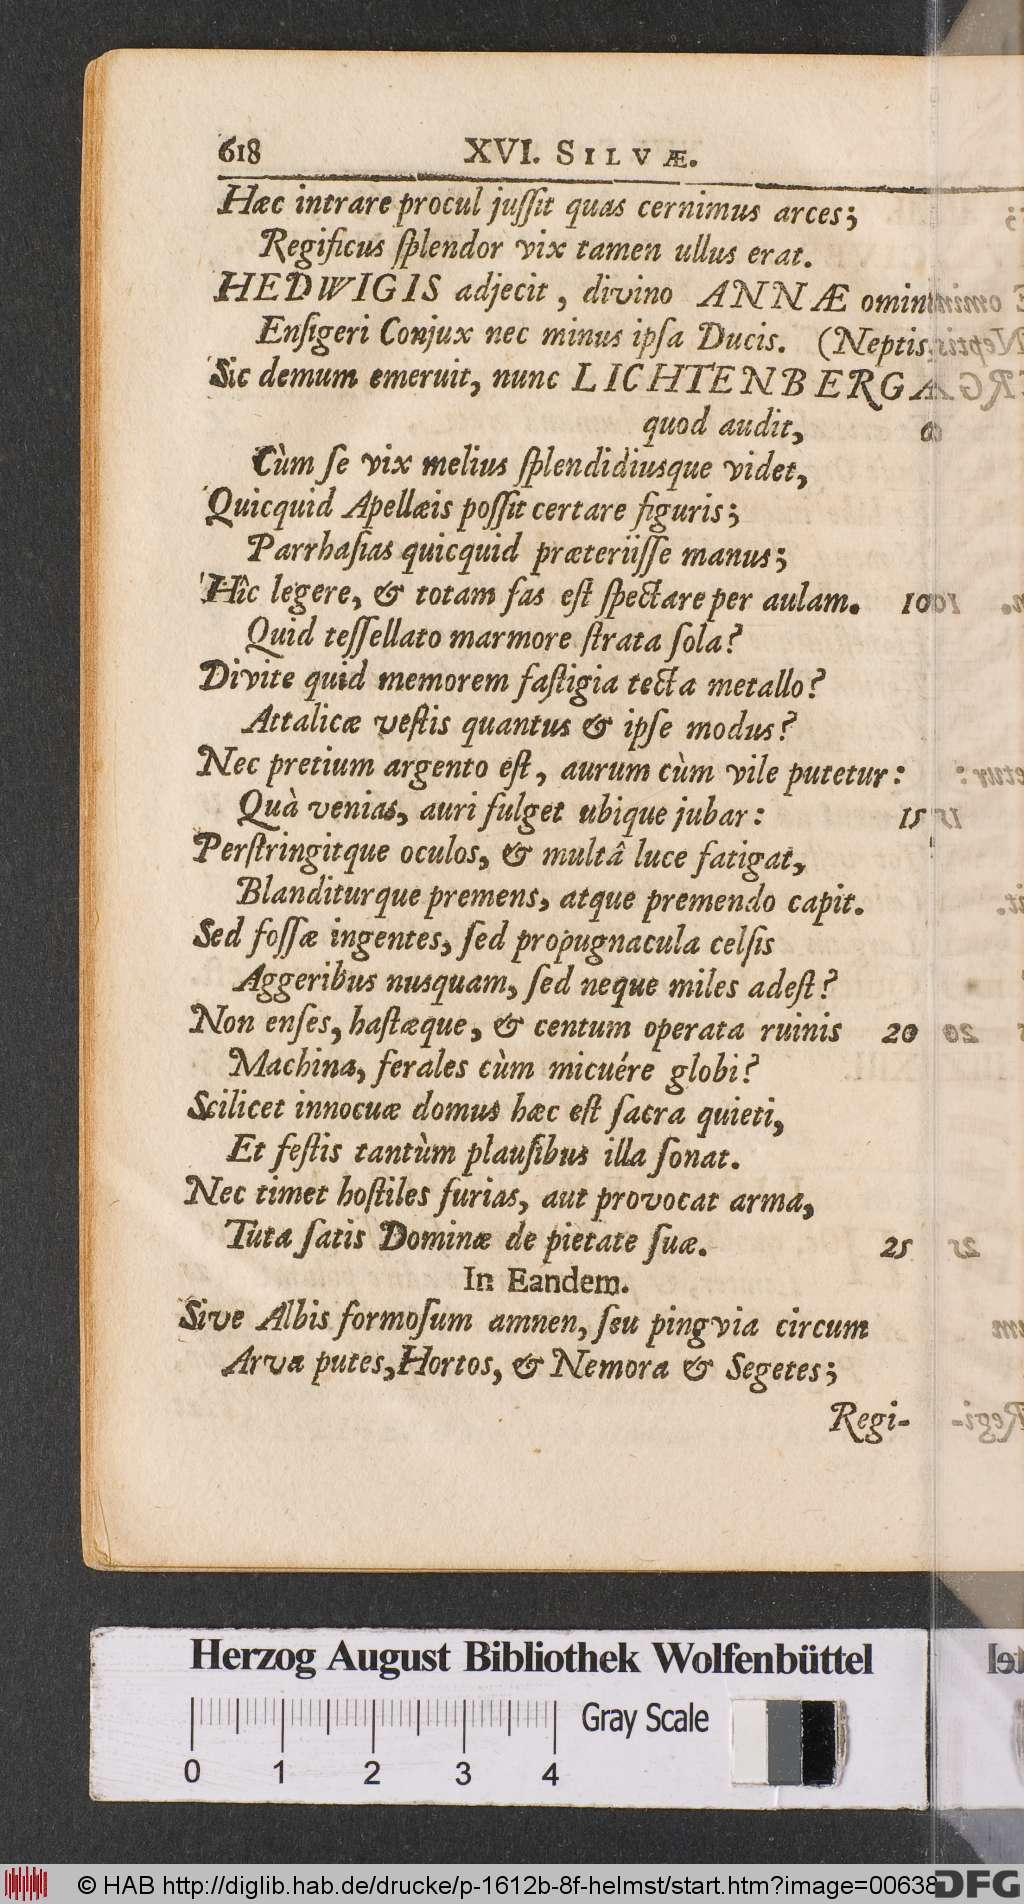 618 XVI. SILVÆ.
Hæc intrare procul juſſit quas cernimus arces;
Regificus ſplendor vix tamen ullus erat.
HEDWIGIS adjecit, divino ANNÆ omin
Enſigeri Conjux nec minus ipſa Ducis. (Neptis,
Sic demum emeruit, nunc LICHTENBERGA
quod audit,
Cùm ſe vix melius ſplendidiusque videt,
Quicquid Apellæis poſſit certare figuris;
Parrhaſias quicquid præteriiſſe manus;
Hîc legere, & totam fas eſt ſpectare per aulam. 10
Quid teſſellato marmore ſtrata ſola?
Divite quid memorem faſtigia tecta metallo?
Attalicæ veſtis quantus & ipſe modus?
Nec pretium argento eſt, aurum cùm vile putetur:
Quà venias, auri fulget ubique jubar: 15
Perſtringitque oculos, & multâ luce fatigat,
Blanditurque premens, atque premendo capit.
Sed foſſæ ingentes, ſed propugnacula celſis
Aggeribus nusquam, ſed neque miles adeſt?
Non enſes, haſtæque, & centum operata ruinis 20
Machina, ferales cùm micuére globi?
Scilicet innocuæ domus hæc eſt ſacra quieti,
Et feſtis tantùm plauſibus illa ſonat.
Nec timet hoſtiles furias, aut provocat arma,
Tuta ſatis Dominæ de pietate ſuæ. 25
In Eandem.
Sive Albis formoſum amnen, ſeu pingvia circum
Arva putes, Hortos, & Nemora & Segetes;
Regi-
Herzog August Bibliothek Wolfenbüttel
Gray Scale
0 1 2 3 4
© HAB http://diglib.hab.de/drucke/p-1612b-8f-helmst/start.htm?image=00638
DFG